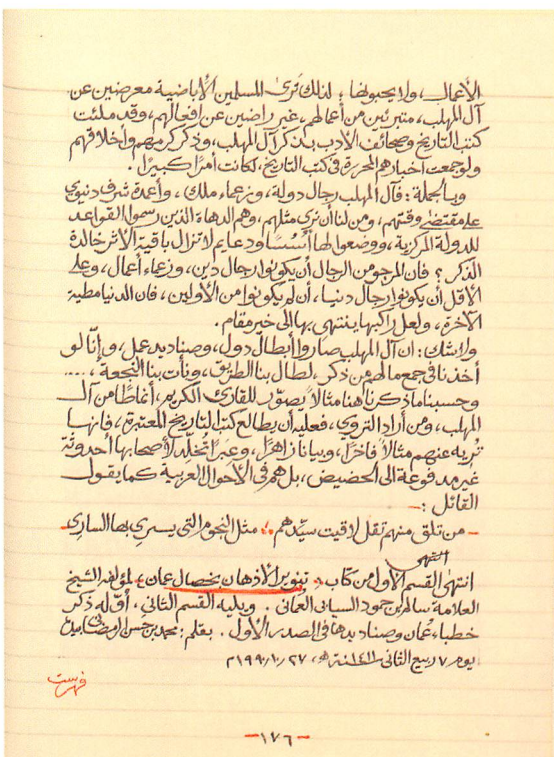 الأعمال، ولا يحبونها؛ لذلك نرى المسلمين الأباضية معرضين عن
آل المهلب، متبرئين من أعمالهم، غير راضين عن افعالهم، وقد ملئت
كتب التاريخ وصحائف الأدب بذكر آل المهلب، وذكر كرمهم وأخلاقهم
ولو جمعت اخبارهم المحررة في كتب التاريخ، لكانت أمرًا كبيرًا.
وبالجملة: فآل المهلب رجال دولة، وزعماء ملك، وأعمدة شرف دنيوي
على مقتضى وقتهم، ومن لنا أن نرى مثلهم، وهم الدهاة الذين رسموا القواعد
للدولة المركزية، ووضعوا لها أُسُسًا ودعايم لا تزال باقية الأثر خالدة
الذكر؟ فان المرجو من الرجال أن يكونوا رجال دين، وزعماء أعمال، وعلى
الأقل أن يكونوا رجال دنيا، أن لم يكونوا من الأولين، فان الدنيا مطية
الآخرة، ولعل راكبها ينتهي بها الى خير مقام.
ولا شك: ان آل المهلب صاروا أبطال دول، وصناديد عمل، وإنّا لو
أخذنا في جمع ما لهم من ذكر، لطال بنا الطريق، ونأت بنا النجعة، ....
وحسبنا ما ذكرنا هنا مثالاً يصوّر للقارئ الكريم، أنماطًا من آل
المهلب، ومن أراد التروي، فعليه أن يطالع كتب التاريخ المعتبرة، فانها
تُريه عنهم مثالاً فاخرًا، وبيانا زاهرًا، وعبرًا تُخلّد لأصحابها أحدوثة
غير مدفوعة الى الحضيض، بل هم في الأحوال العربية كما يقول
القائل :-
- من تلق منهم تقل لاقيت سيّدهم ؛؛ مثل النجوم التي يسري بها الساري -
انتهى
انتهى القسم الأول من كتاب «تنوير الأذهان بخصال عمان» لمؤلفه الشيخ
العلامة سالم بن حمود السيابي العماني. ويليه القسم الثاني، أوّله ذكر
خطباء عُمان وصناديدها في الصدر الأول. بقلم: محمد بن حسن الرمضاني بيده
يوم ٧ ربيع الثاني سنة ١٤١١هـ، ٢٧/١٠/١٩٩٠م
فهرست
-١٧٦-